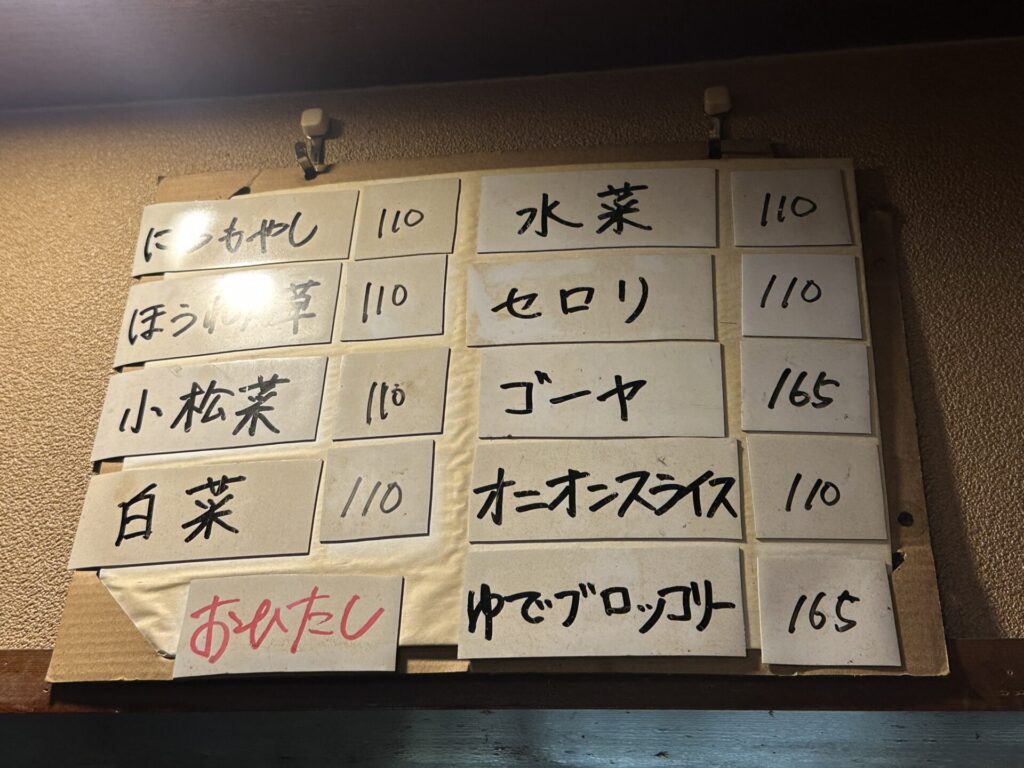 にらもやし 110
ほうれん草 110
小松菜 110
白菜 110
おひたし
水菜 110
セロリ 110
ゴーヤ 165
オニオンスライス 110
ゆでブロッコリー 165